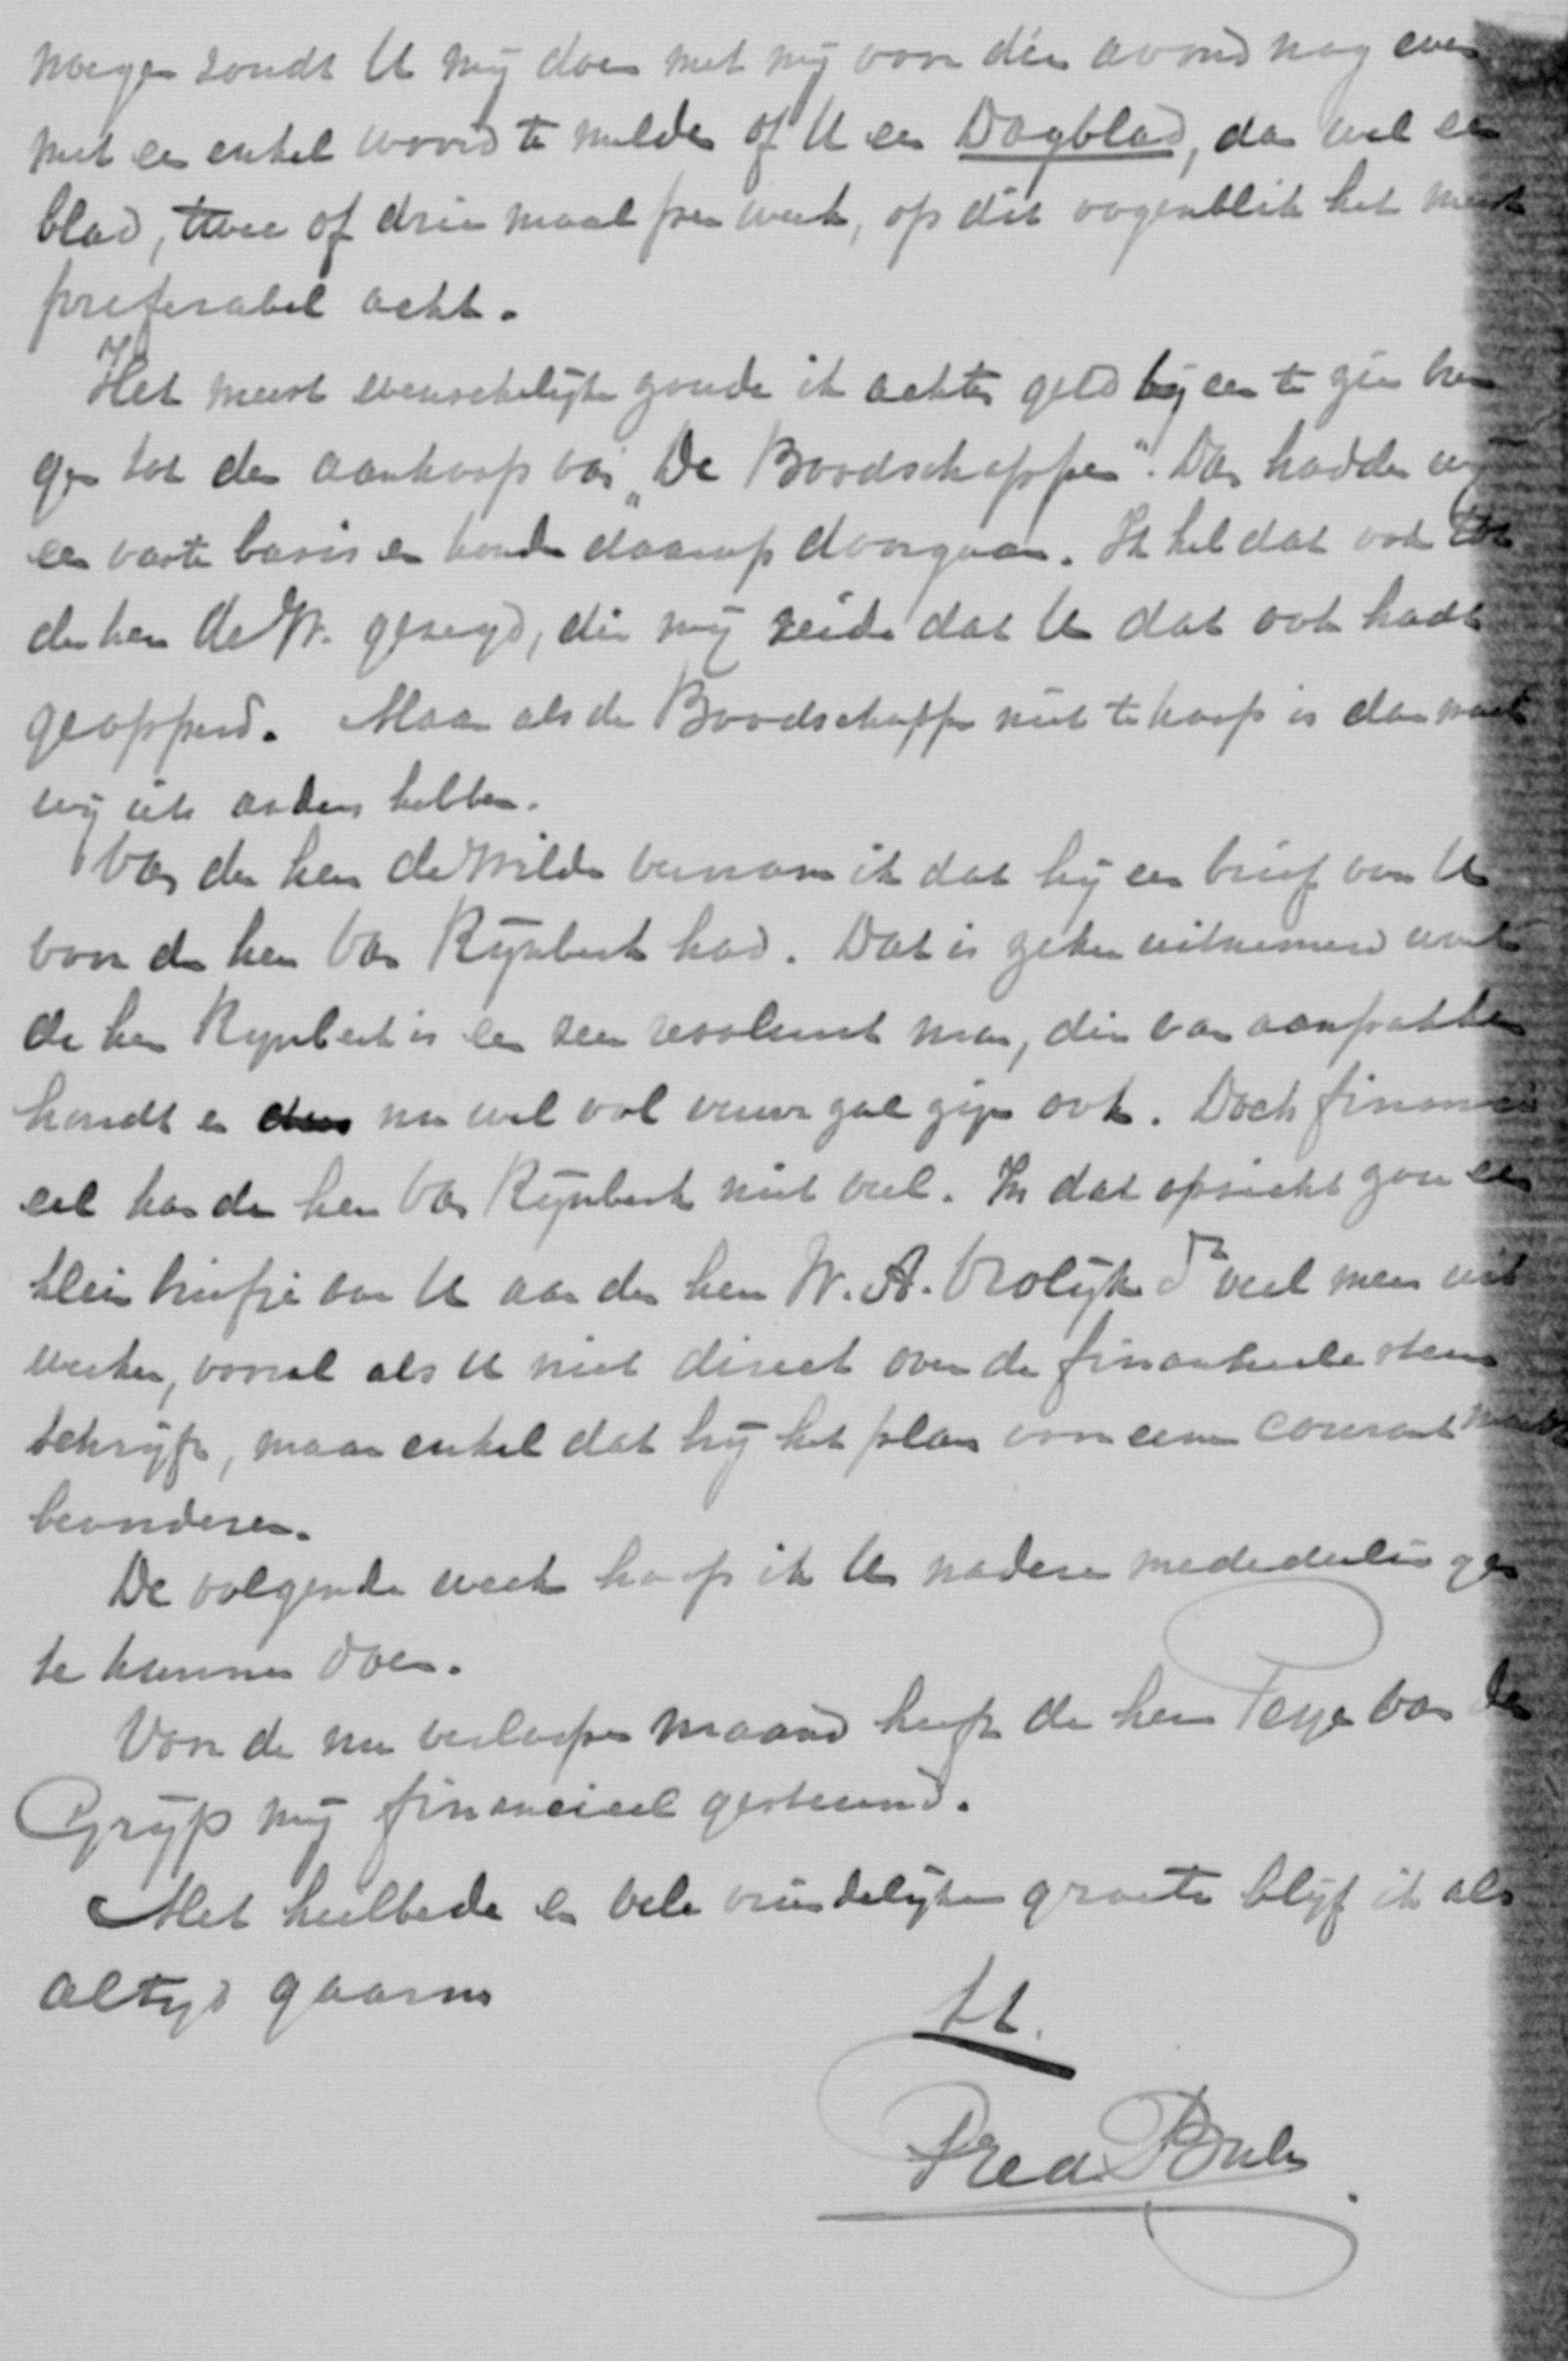 mogen zoudt U mij doen met mij voor dien avond nog even
met een enkel woord te melden of U een Dagblad, dan wel een
blad, twee of drie maal per week, op dit oogenblik het meest
preferabel acht.
Het meest wenschelijke zoude ik achten geld bijeen te zien bren
gen tot den aankoop van „De Boodschapper". Dan hadden wij
een vaste basis en konden daarop doorgaan. Ik heb dat ook tot
den heer de W. gezegd, die mij zeide dat U dat ook hadt
geopperd. Maar als de Boodschapper niet te koop is dan moeten
wij iets anders hebben.
Van den heer de Wilde vernam ik dat hij een brief van U
voor den heer Van Rijnberk had. Dat is zeker uitnemend want
de heer Rynberk is een zeer resoluut man, die van aanpakken
houdt en nu wel vol vuur zal zijn ook. Doch financi
eel kan de heer Van Rijnberk niet veel. In dat opzicht zou een
klein briefje van U aan den heer W. A. Vrolijk Jr veel meer uit
werken, vooral als U niet direct over de financieele steun
schrijft, maar enkel dat hij het plan voor eene courant
De volgende week hoop ik U nadere mededeelingen
te kunnen doen.
Voor de nu verloopen maand heeft de heer van der
Grijp mij financieel gesteund.
Met heilbede en vele vriendelijke groeten blijf ik als
altijd gaarne
Uw.
Fred